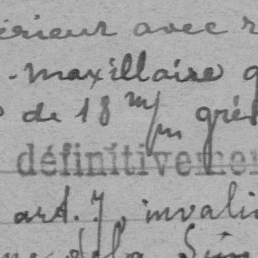 érieur avec r
-maxillaire g
de 18 m/m gré
définitivemen
art. 7, invali